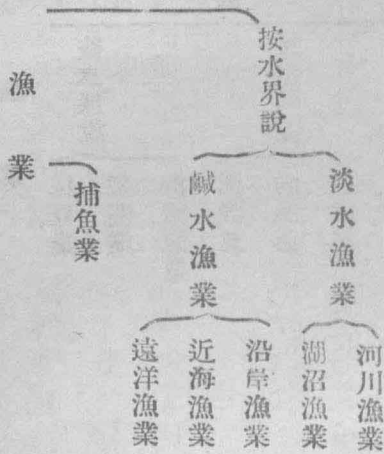 按水界說
淡水漁業
河川漁業
湖沼漁業
鹹水漁業
沿岸漁業
近海漁業
遠洋漁業
捕魚業
漁業